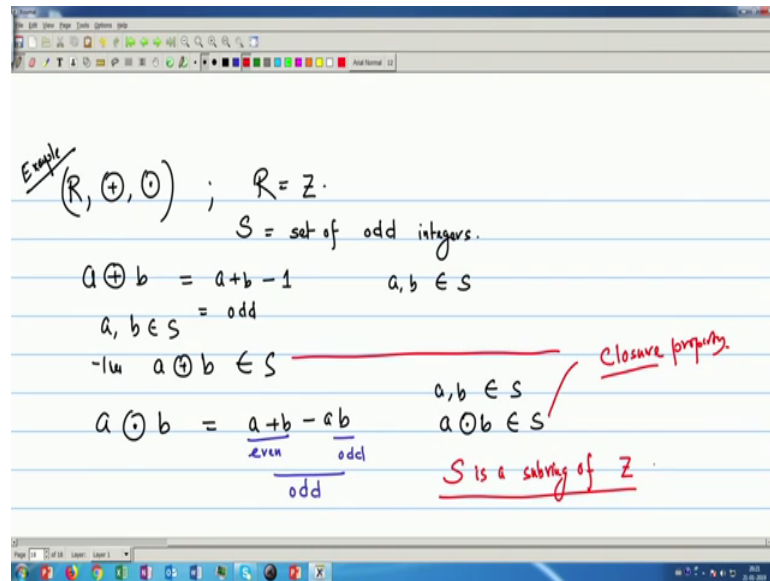 Journal
File Edit View Page Tools Options Help
Arial Normal 12
Example
(R, ⊕, ⊙) ; R = Z.
S = set of odd integers.
a ⊕ b = a+b − 1 a, b ∈ S
a, b ∈ S = odd
a ⊕ b ∈ S
Closure property.
a, b ∈ S
a ⊙ b = a+b − ab a ⊙ b ∈ S
even odd
odd
S is a subring of Z
Page 16 of 16 Layer: Layer 1